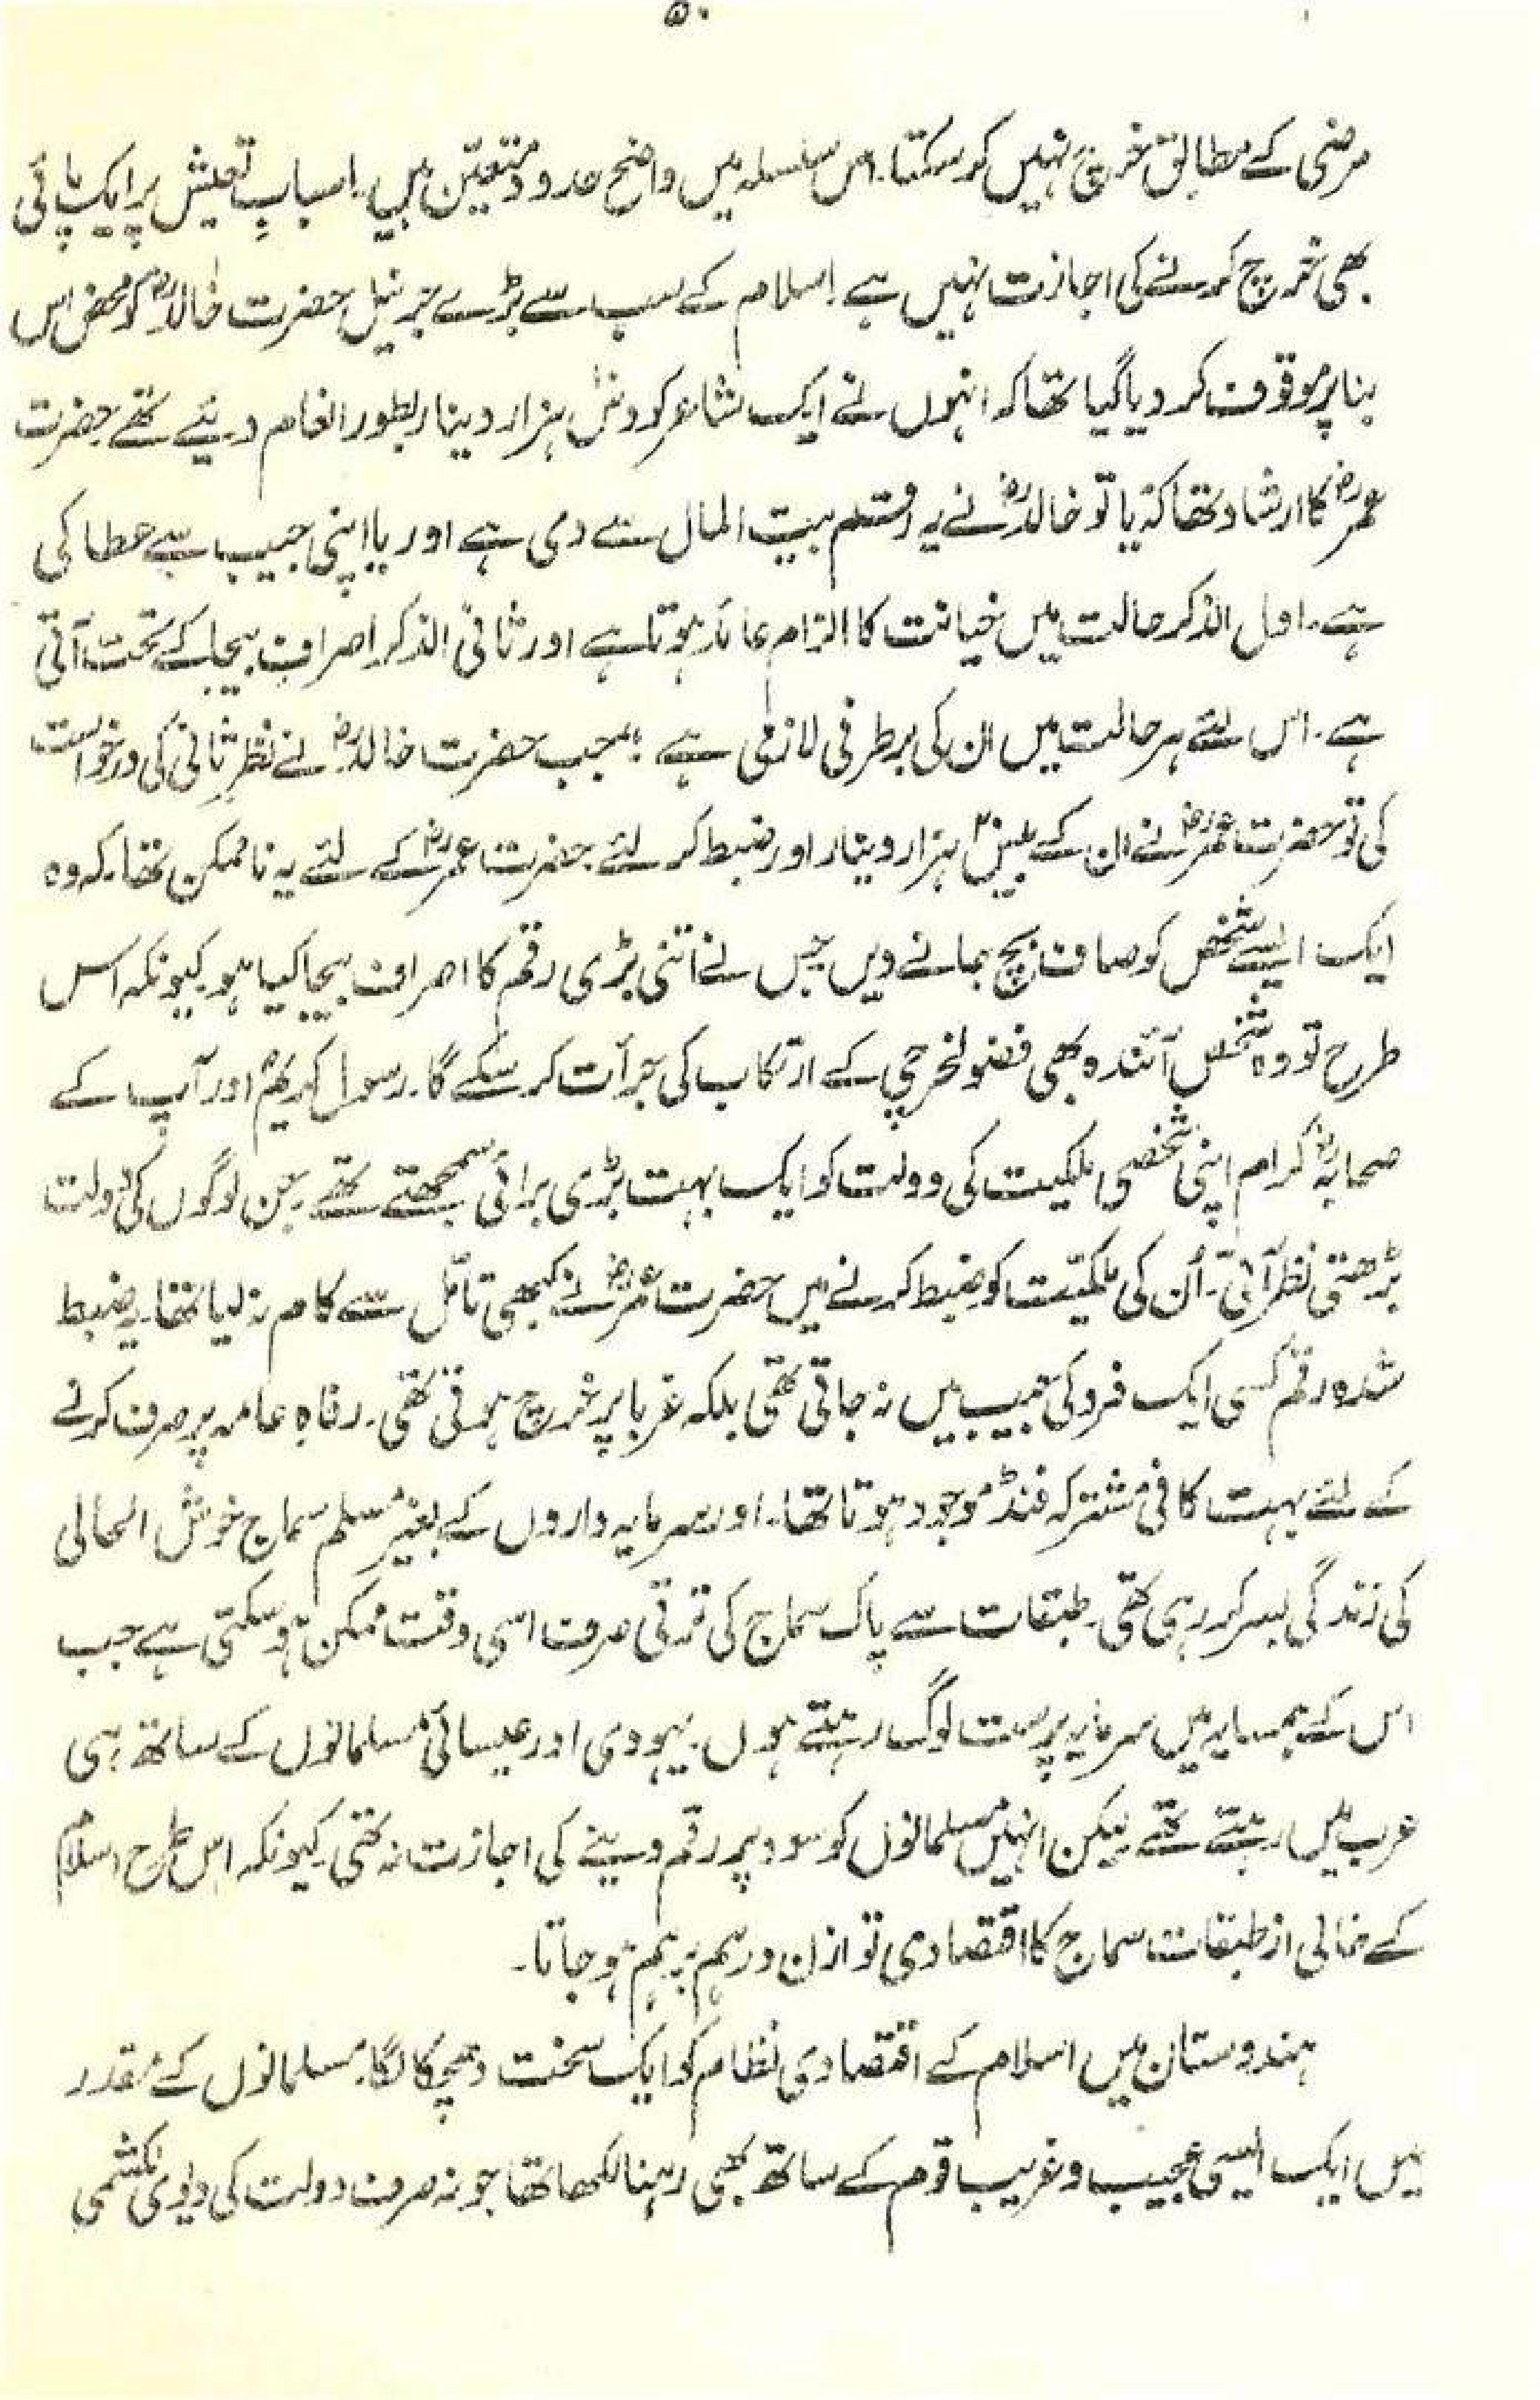 ۵۰
مرضی کے مطابق خرچ نہیں کر سکتا۔ اس سلسلہ میں واضح حدود متعیّن ہیں۔ اسبابِ تعیش پر ایک پائی
بھی خرچ کرنے کی اجازت نہیں ہے۔ اسلام کے سب سے بڑے جرنیل حضرت خالدؓ کو محض اس
بنا پر موقوف کر دیا گیا تھا کہ انہوں نے ایک شاعر کو دس ہزار دینار بطور انعام دیئے تھے۔ حضرت
عمرؓ کا ارشاد تھا کہ "یا تو خالدؓ نے یہ رقم بیت المال سے دی ہے اور یا اپنی جیب سے عطا کی
ہے۔ اول الذکر حالت میں خیانت کا الزام عائد ہوتا ہے اور ثانی الذکر اصراف بیجا کے تحت آتی
ہے۔ اس لئے ہر حالت میں ان کی برطرفی لازمی ہے"۔ جب حضرت خالدؓ نے نظرِ ثانی کی درخواست
کی تو حضرت عمرؓ نے ان کے بیس ہزار دینار اور ضبط کر لئے۔ حضرت عمرؓ کے لئے یہ ناممکن تھا۔ کہ وہ
ایک ایسے شخص کو صاف بچ جانے دیں جس نے اتنی بڑی رقم کا اصراف بیجا کیا ہو۔ کیونکہ اس
طرح تو وہ شخص آئندہ بھی فضولخرچی کے ارتکاب کی جرأت کر سکے گا۔ رسول کریمؐ اور آپ کے
صحابہؓ کرام اپنی شخصی ملکیت کی دولت کو ایک بہت بڑی برائی سمجھتے تھے۔ جن لوگوں کی دولت
بڑھتی نظر آتی۔ اُن کی ملکیّت کو ضبط کرنے میں حضرت عمرؓ نے کبھی تامّل سے کام نہ لیا تھا۔ یہ ضبط
شدہ رقم کسی ایک فرد کی جیب میں نہ جاتی تھی بلکہ غربا پر خرچ ہوتی تھی۔ رفاہِ عامہ پر صرف کرنے
کے لئے بہت کافی مشترکہ فنڈ موجود ہوتا تھا۔ اور سرمایہ داروں کے بغیر مسلم سماج خوش الحالی
کی زندگی بسر کر رہی تھی۔ طبقات سے پاک سماج کی ترقی صرف اسی وقت ممکن ہو سکتی ہے جب
اس کے ہمسایہ میں سرمایہ پرست لوگ رہتے ہوں۔ یہودی اور عیسائی مسلمانوں کے ساتھ ہی
عرب میں رہتے تھے لیکن انہیں مسلمانوں کو سود پر رقم دینے کی اجازت نہ تھی۔ کیونکہ اس طرح اسلام
کے خالی از طبقات سماج کا اقتصادی توازن درہم برہم ہو جاتا۔
ہندوستان میں اسلام کے اقتصادی نظام کو ایک سخت دھچکا لگا۔ مسلمانوں کے مقدر
میں ایک ایسی عجیب و غریب قوم کے ساتھ بھی رہنا لکھا تھا جو نہ صرف دولت کی دیوی لکشمی